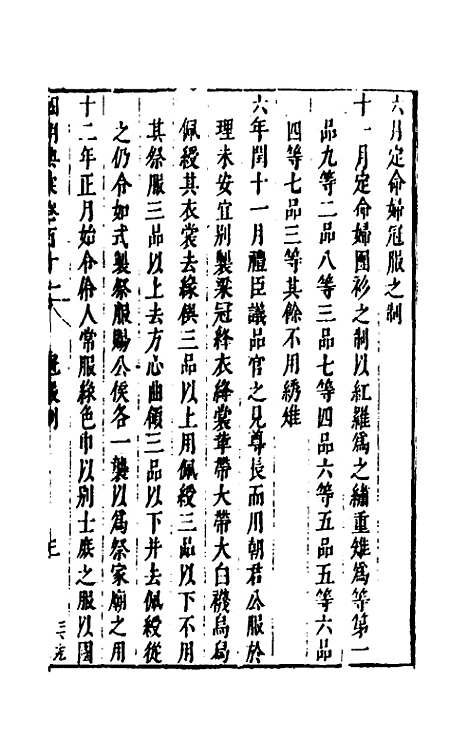 六月定命婦冠服之制
十一月定命婦團衫之制以紅羅爲之繡重雉爲等第一
品九等二品八等三品七等四品六等五品五等六品
四等七品三等其餘不用綉雉
六年閏十一月禮臣議品官之兄尊長而用朝君公服於
理未安宜别製梁冠絳衣絳裳革帶大帶大白襪烏舄
佩綬其衣裳去緣襈三品以上用佩綬三品以下不用
其祭服三品以上去方心曲領三品以下并去佩綬從
之仍令如式製祭服賜公侯各一襲以爲祭家廟之用
十二年正月始令伶人常服綠色巾以别士庶之服以國
國朝典彙卷百十一
冠服制